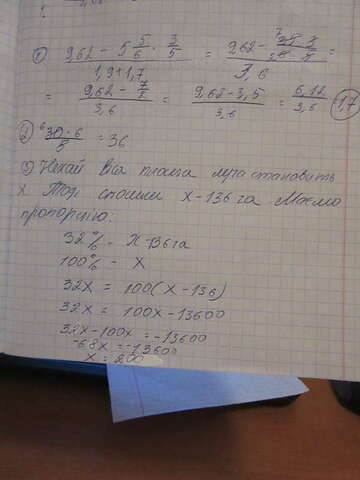 1) (9,62 - 5 5/6 · 3/5) / (1,9+1,7) = (9,62 - 35/6 · 3/5) / 3,6 =
= (9,62 - 7/2) / 3,6 = (9,62-3,5) / 3,6 = 6,12 / 3,6 = 1,7
2) 30·6 / 5 = 36
3) Нехай вся площа луга становить
x Тоді скосили x-136 га Маємо
пропорцію:
32% - x-136га
100% - x
32x = 100(x-136)
32x = 100x-13600
32x-100x=-13600
-68x=-13600
x = 200